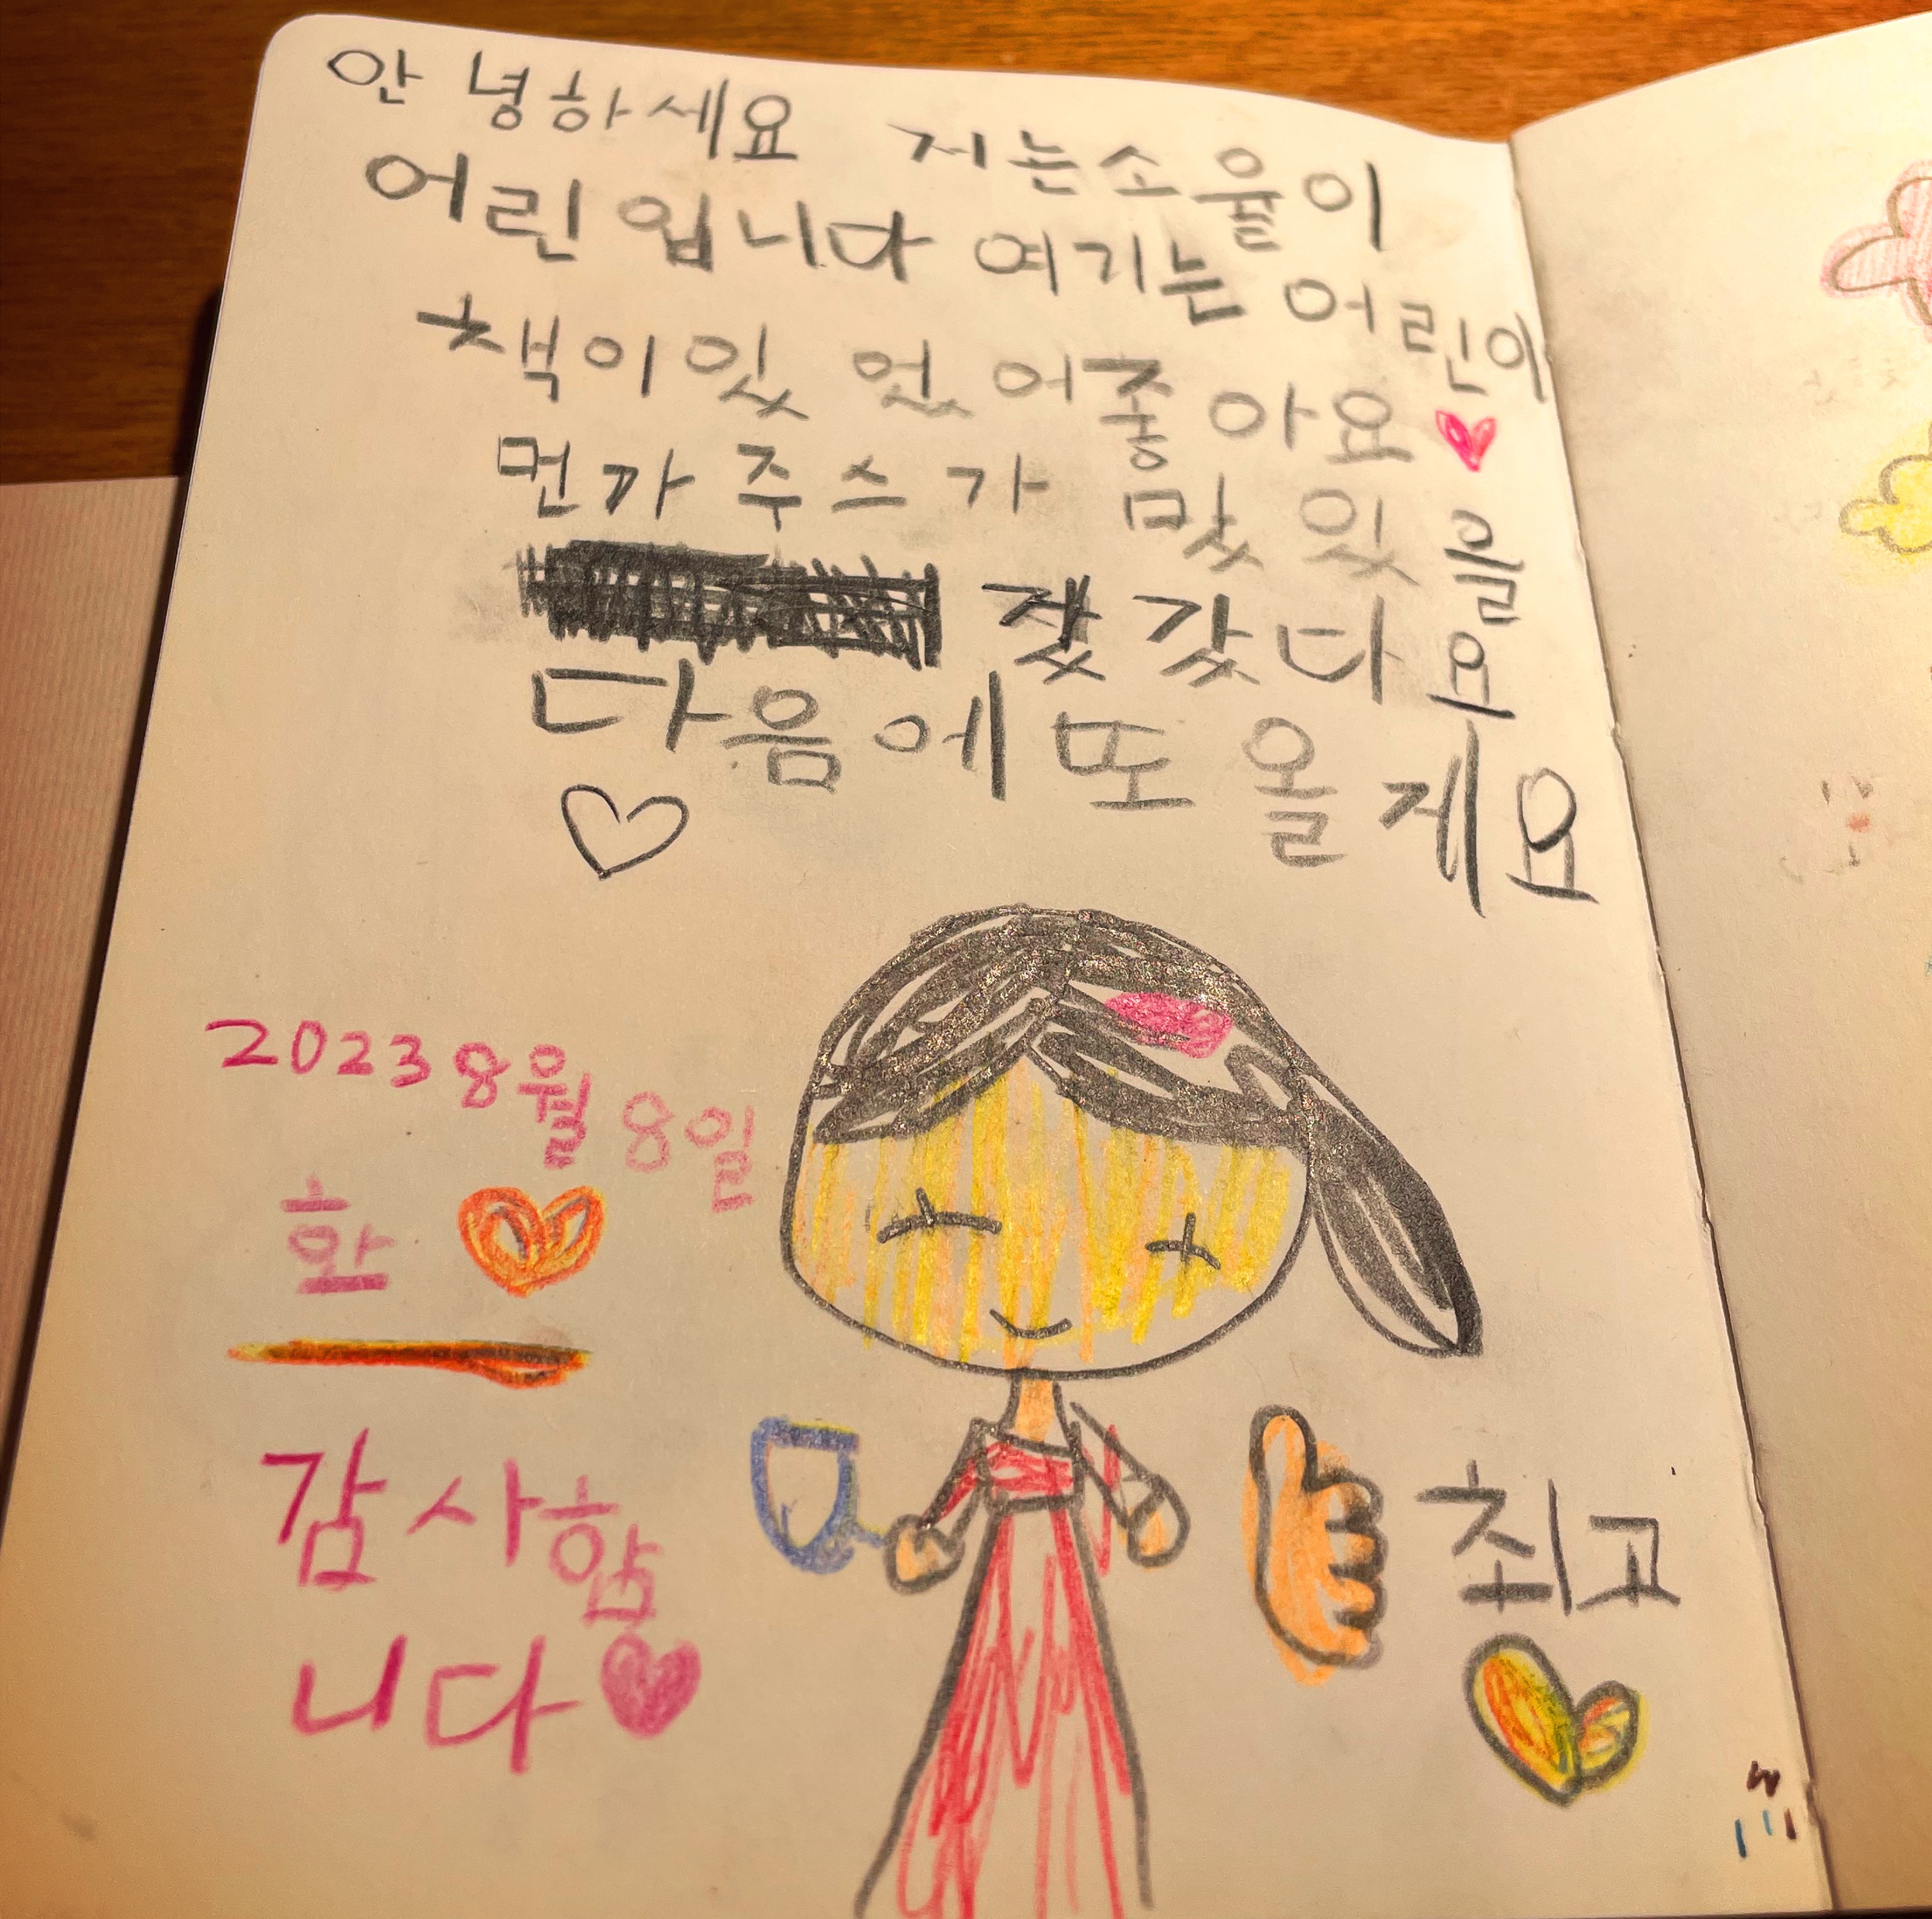 안녕하세요 저는소율이
어린입니다 여기는 어린이
책이있 었어좋아요
먼가 주스가 맜있음
잤갔다 와
다음에 또 올게요
2023 8월 8일
화
감사합
니다
최고